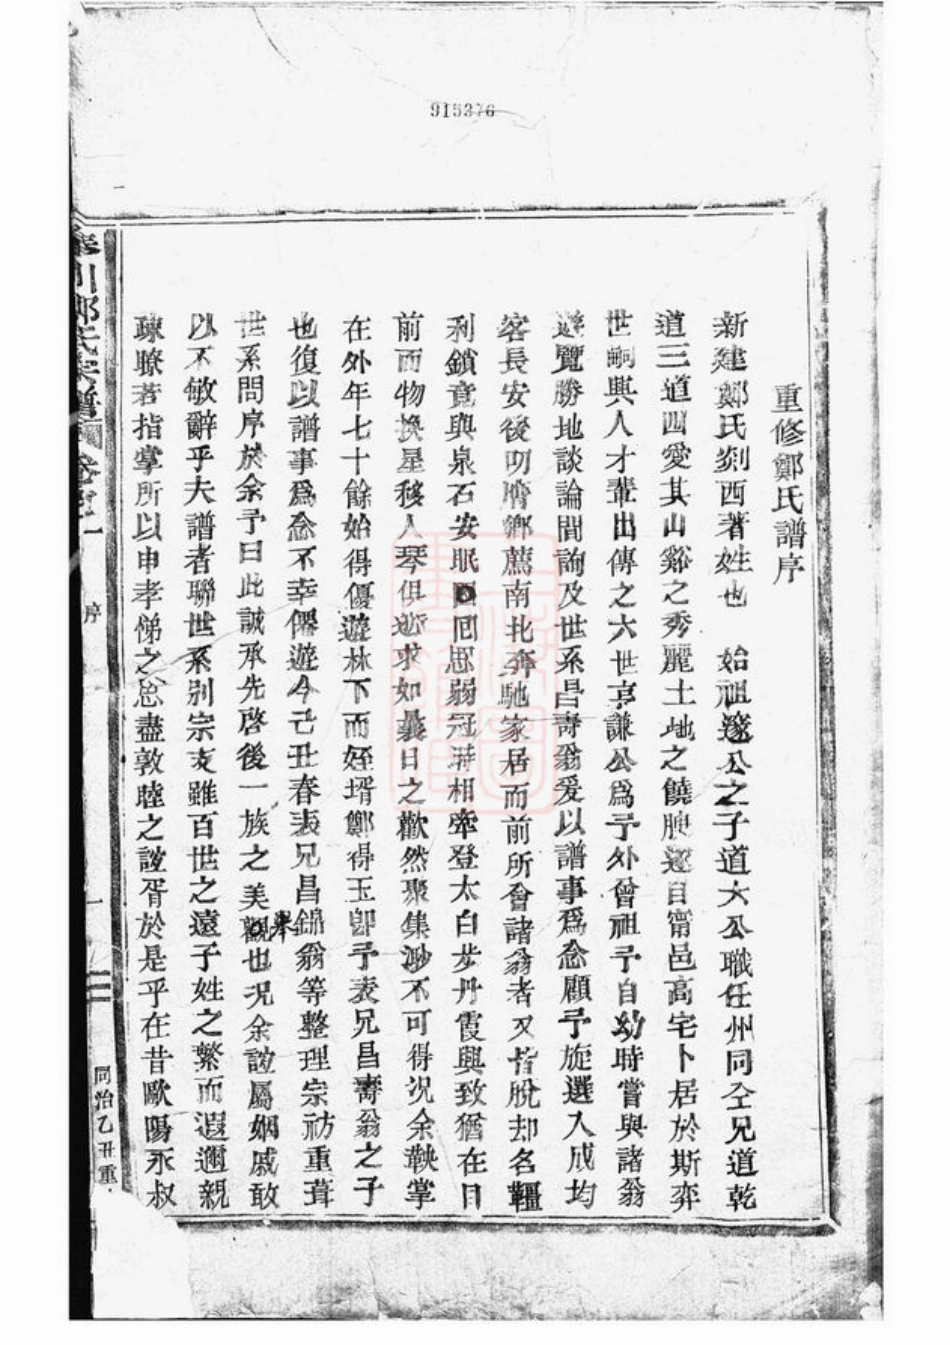 915376
重修鄭氏譜序
新建鄭氏剡西著姓也 始祖邃公之子道大公職任州同仝兄道乾
道三道四愛其山谿之秀麗土地之饒腴遂自甯邑高宅卜居於斯弈
世嗣興人才輩出傳之六世亨謙公爲予外曾祖予自幼時嘗與諸翁
遊覽勝地談論間詢及世系昌壽翁爰以譜事爲念顧予旋選入成均
客長安後叨膺鄉薦南北奔馳家居而前所會諸翁者又皆脫却名韁
利鎖竟與泉石安眠回思弱冠時相牽登太白步丹霞興致猶在目
前而物換星移人琴俱逝求如曩日之歡然聚集渺不可得況余鞅掌
在外年七十餘始得優遊林下而姪壻鄭得玉卽予表兄昌壽翁之子
也復以譜事爲念不幸僊遊今己丑春表兄昌錦翁等整理宗祊重葺
世系問序於余予曰此誠承先啓後一族之美舉也況余誼屬姻戚敢
以不敏辭乎夫譜者聯世系別宗支雖百世之遠子姓之繁而遐邇親
疎瞭若指掌所以申孝悌之思盡敦睦之誼胥於是乎在昔歐陽永叔
川鄭氏宗譜 卷之一 序 一 同治乙丑重